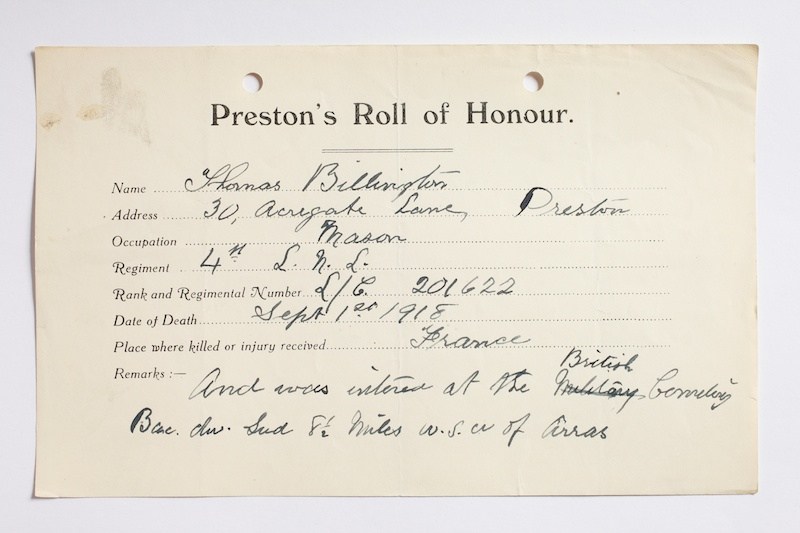 Preston's Roll of Honour.
Name Thomas Billington
Address 30, Acregate Lane, Preston
Occupation Mason
Regiment 4th L. N. L.
Rank and Regimental Number L/C. 201622
Date of Death Sept 1st 1918
Place where killed or injury received France
British
Remarks :— And was intered at the Military Cemetery
Bac. du. Sud 8½ Miles w.s.w of Arras